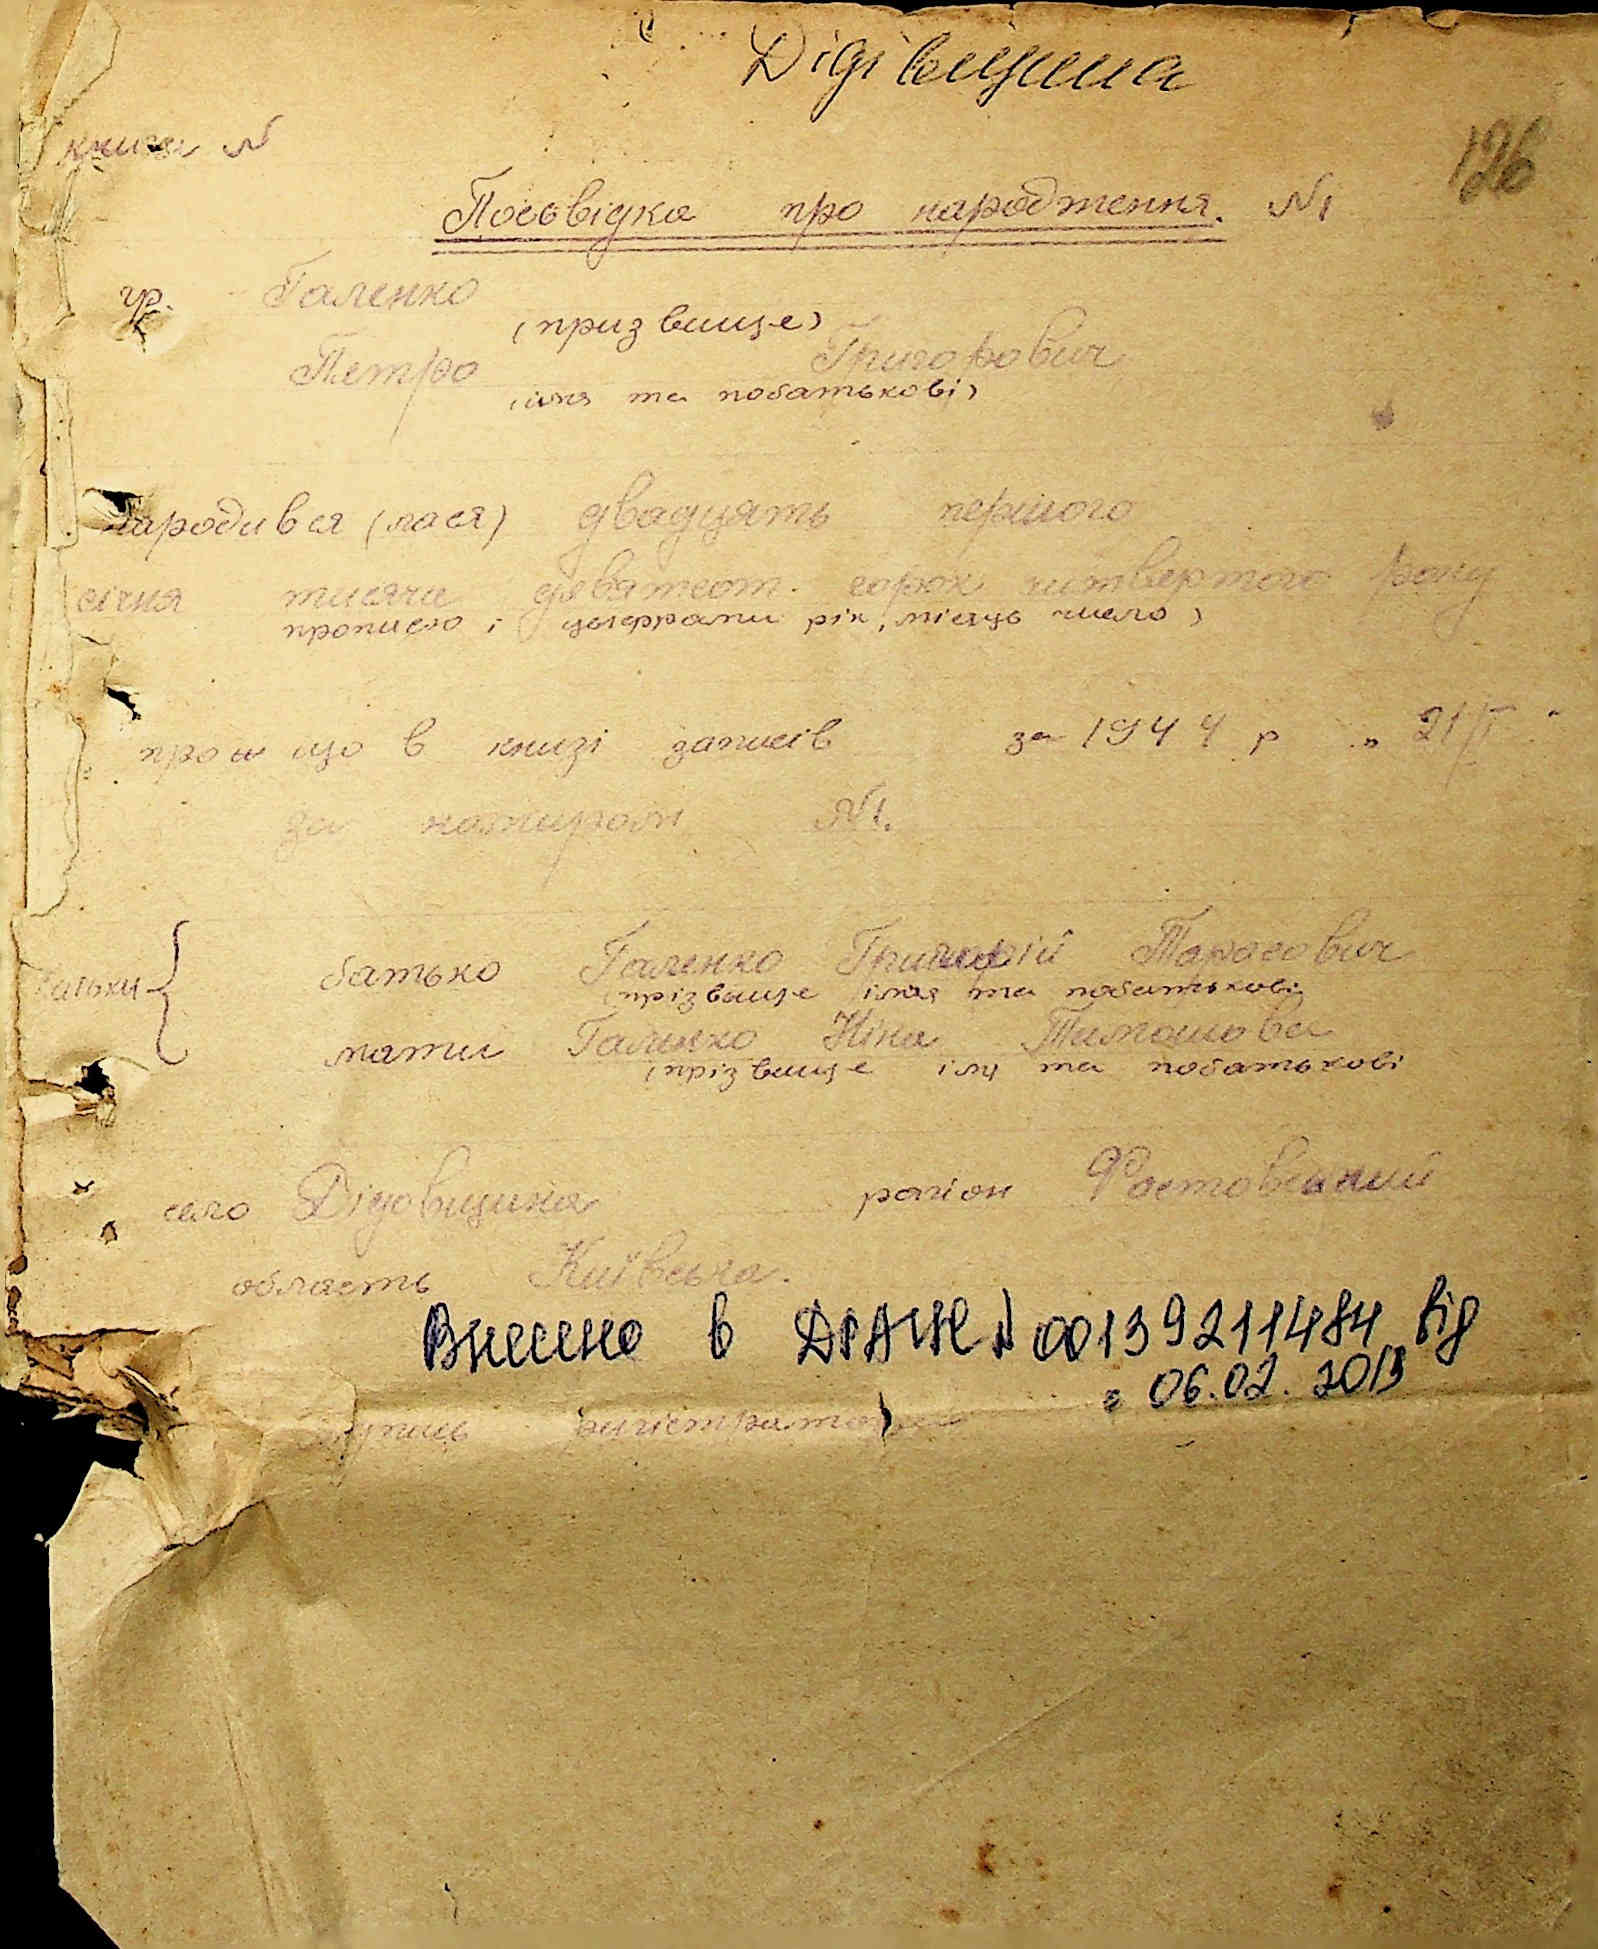 Дідівщина
книги №
126
Посьвідка про народження. №1
гр. Галенко
(призвище)
Петро Григорович
(імя та побатькові)
народився (лася) двадцять першого
січня тисяча девятсот. сорок читвертого року
прописю і цыфрами рік, місяць число)
про що в книзі записів за 1944 р „ 21/I "
за номиром №1.
батьки { батько Галенко Григорій Тарасович
(прізвище імя та побатькові
мати Галенко Ніна Тимошова
(прізвище імя та побатькові
село Дідовщина район Фостовський
область Київська.
Внесено в ДРАЦС № 001392111484 від
06.02. 2013
підпись ригістратора